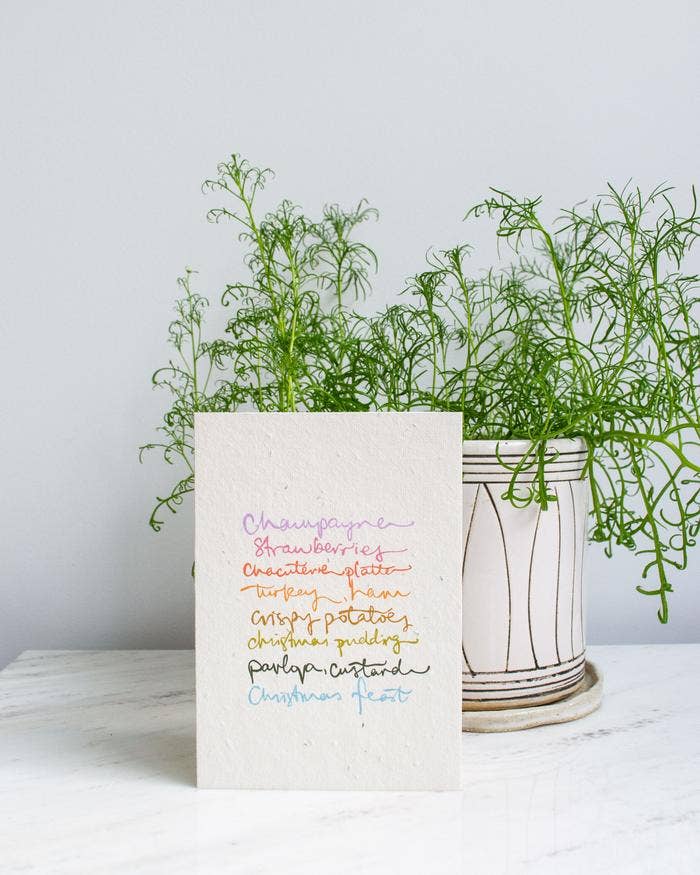 Champagne
Strawberries
Chacuterie platter
Turkey, ham
crispy potatoes
christmas pudding
pavlova, custard
Christmas feast